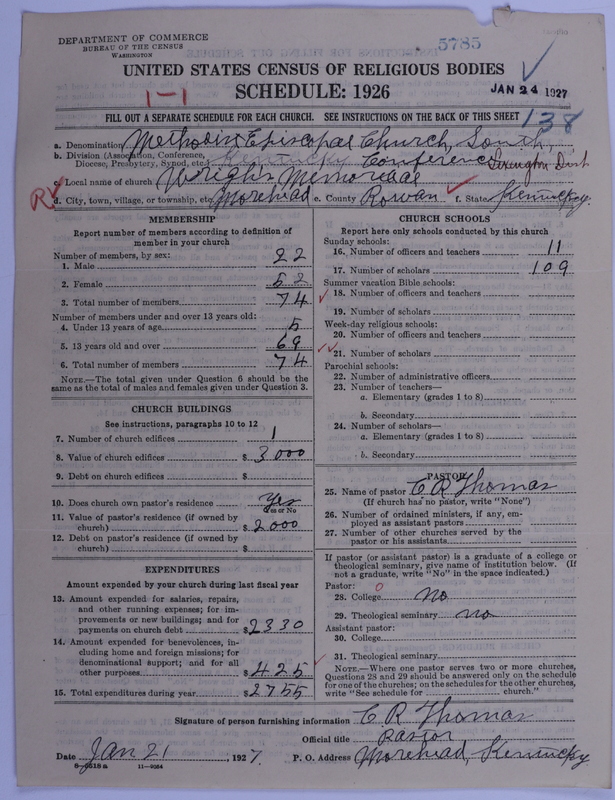 DEPARTMENT OF COMMERCE
BUREAU OF THE CENSUS
WASHINGTON
5785
UNITED STATES CENSUS OF RELIGIOUS BODIES
SCHEDULE: 1926
1-1
JAN 24 1927
FILL OUT A SEPARATE SCHEDULE FOR EACH CHURCH. SEE INSTRUCTIONS ON THE BACK OF THIS SHEET
138
a. Denomination Methodist Episcopal Church, South,
b. Division (Association, Conference, Diocese, Presbytery, Synod, etc.) Kentucky Conference Lexington Dist
c. Local name of church Wrights Memorial
d. City, town, village, or township, etc. Morehead e. County Rowan f. State Kentucky.
MEMBERSHIP
Report number of members according to definition of
member in your church
Number of members, by sex:
1. Male 22
2. Female 52
3. Total number of members 74
Number of members under and over 13 years old:
4. Under 13 years of age 5
5. 13 years old and over 69
6. Total number of members 74
NOTE.—The total given under Question 6 should be the
same as the total of males and females given under Question 3.
CHURCH BUILDINGS
See instructions, paragraphs 10 to 12
7. Number of church edifices 1
8. Value of church edifices $ 3000
9. Debt on church edifices $
10. Does church own pastor's residence Yes
Yes or No
11. Value of pastor's residence (if owned by
church) $ 2000
12. Debt on pastor's residence (if owned by
church) $
EXPENDITURES
Amount expended by your church during last fiscal year
13. Amount expended for salaries, repairs,
and other running expenses; for im-
provements or new buildings; and for
payments on church debt $ 2330
14. Amount expended for benevolences, in-
cluding home and foreign missions; for
denominational support; and for all
other purposes $ 425
15. Total expenditures during year $ 2755
CHURCH SCHOOLS
Report here only schools conducted by this church
Sunday schools:
16. Number of officers and teachers 11
17. Number of scholars 109
Summer vacation Bible schools:
18. Number of officers and teachers
19. Number of scholars
Week-day religious schools:
20. Number of officers and teachers
21. Number of scholars
Parochial schools:
22. Number of administrative officers
23. Number of teachers—
a. Elementary (grades 1 to 8)
b. Secondary
24. Number of scholars—
a. Elementary (grades 1 to 8)
b. Secondary
PASTOR
25. Name of pastor C R Thomas
(If church has no pastor, write "None")
26. Number of ordained ministers, if any, em-
ployed as assistant pastors
27. Number of other churches served by the
pastor or his assistants
If pastor (or assistant pastor) is a graduate of a college or
theological seminary, give name of institution below. (If
not a graduate, write "No" in the space indicated.)
Pastor: 0
28. College no
29. Theological seminary no
Assistant pastor:
30. College
31. Theological seminary
NOTE.—Where one pastor serves two or more churches,
Questions 28 and 29 should be answered only on the schedule
for one of the churches; on the schedules for the other churches,
write "See schedule for church."
Signature of person furnishing information C. R Thomas
Official title Pastor
Date Jan 21, 1927. P. O. Address Morehead, Kentucky
11-9064